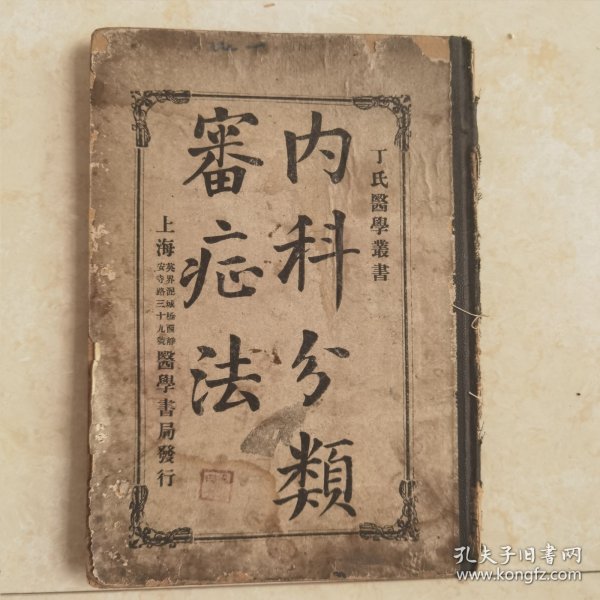 丁氏醫學叢書
內科分類
審症法
上海英界泥城橋西靜安寺路三十九號醫學書局發行
孔夫子旧书网
www.kongfz.com